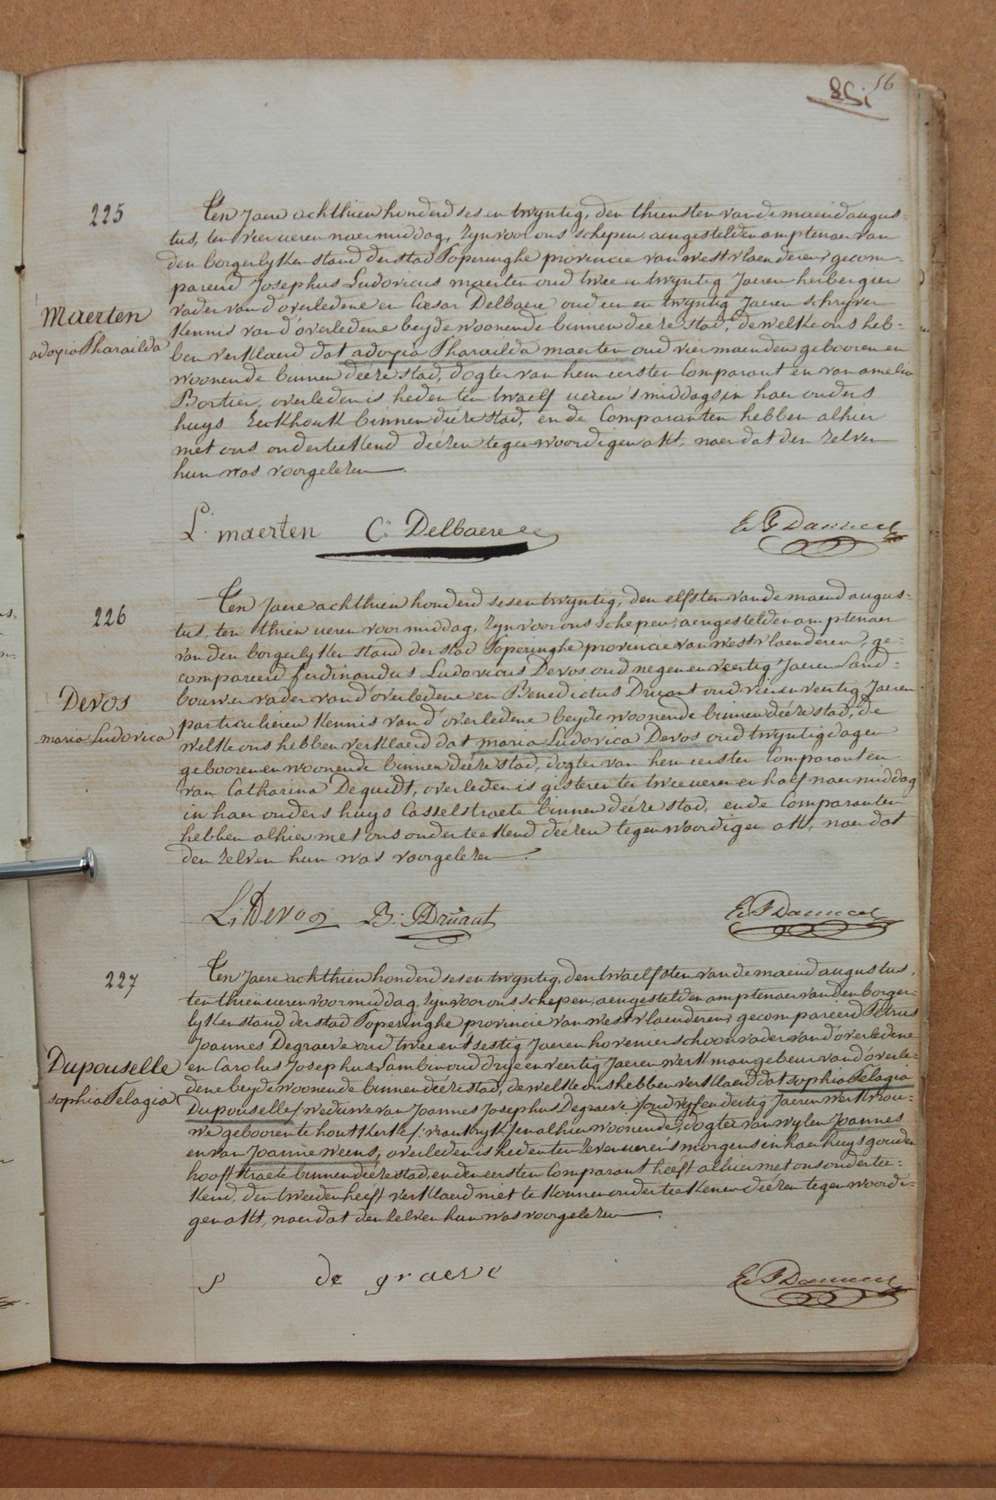 56
225
Ten Jaere achthien honderd ses en twyntig, den thiensten van de maend augus-
tus, ten vier ueren naermiddag, Zyn voor ons schepen, aengestelden amptenaer van
den borgerlyken stand der stad Poperinghe provincie van westvlaenderen, gecom-
pareerd Josephus Ludovicus maerten oud twee en twyntig Jaeren herbergier
vader van d'overledene en Cæsar Delbaere oud en twyntig Jaeren schryver
Kennis van d'overledene beyde woonende binnen deéze stad, de welke ons heb-
ben verklaerd dat adogia Pharailda maerten oud vier maenden gebooren en
woonende binnen deéze stad, dogter van hem eersten Comparant en van amelia
Bortier, overleden is heden ten twaelf ueren 's middags in haer ouders
huys Eekhouk binnen deéze stad, en de Comparanten hebben alhier
met ons onderteekend deézen tegenwoordigen akt, naer dat den zelven
hun was voorgelezen
Maerten
adogia Pharailda
L. maerten C. Delbaere
226
Ten Jaere achthien honderd ses en twyntig, den elfsten van de maend augus-
tus, ten thien ueren voormiddag, Zyn voor ons schepen, aengestelden amptenaer
van den borgerlyken stand der stad Poperinghe provincie van westvlaenderen, ge-
compareerd ferdinandus Ludovicus Devos oud negen en veertig Jaeren Land-
bouwer vader van d'overledene en Benedictus Druant oud vier en veertig Jaeren
particulieren Kennis van d'overledene beyde woonende binnen deéze stad, de
welke ons hebben verklaerd dat maria Ludovica Devos oud twyntig dagen
gebooren en woonende binnen deéze stad, dogter van hem eersten Comparant en
van Catharina Dequidt, overleden is gisteren ten twee ueren en half naermiddag
in haer ouders huys Casselstraete binnen deéze stad, en de Comparanten
hebben alhier met ons onderteekend deézen tegenwoordigen akt, naer dat
den zelven hun was voorgelezen
Devos
maria Ludovica
L: Devos B: Druant
227
Ten Jaere achthien honderd ses en twyntig, den twaelfsten van de maend augustus,
ten thien ueren voormiddag, Zyn voor ons schepen, aengestelden amptenaer van den borger-
lyken stand der stad Poperinghe provincie van westvlaenderen, gecompareerd Petrus
Joannes Degraeve oud twee en t'sestig Jaeren hovenier schoonvader van d'overledene
en Carolus Josephus Lambin oud drye en veertig Jaeren werkman gebeur van d'overle-
dene beyde woonende binnen deéze stad, de welke ons hebben verklaerd dat sophia Pelagia
Dupouselle, weduwe van Joannes Josephus Degraeve oud vyf en dertig Jaeren werkvrou-
we gebooren te houtkerke /: vrankryk :/ en alhier woonende, dogter van wylen Joannes
en van Joanne weens, overleden is heden ten zeven ueren 's morgens in haer huys gouden
hooftstraete binnen deéze stad, en den eersten Comparant heeft alhier met ons ondertee-
kend, den tweeden heeft verklaerd niet te konnen onderteekenen deézen tegenwoordi-
gen akt, naer dat den zelven hun was voorgelezen
Dupouselle
sophia Pelagia
P de graeve